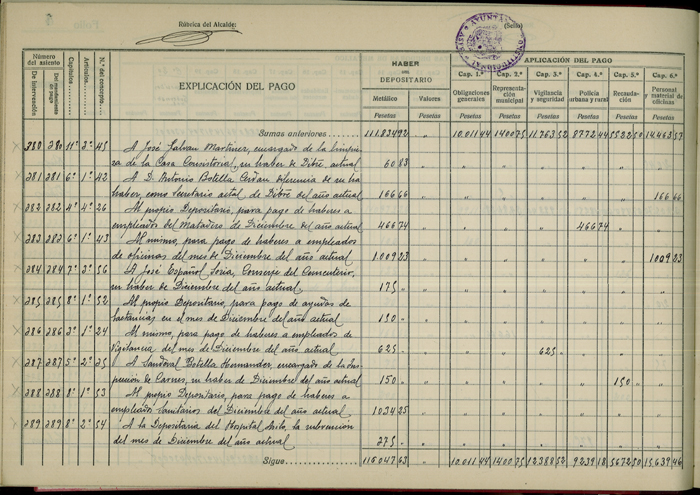 Rúbrica del Alcalde:
(Sello)
Número del asiento
De Intervención
Del mandamiento de pago
Capítulos
Artículos
N.º del concepto
EXPLICACIÓN DEL PAGO
HABER en DEPOSITARIO
Metálico
Valores
Pesetas
Pesetas
APLICACIÓN DEL PAGO
Cap. 1.º Cap. 2.º Cap. 3.º Cap. 4.º Cap. 5.º Cap. 6.º
Obligaciones generales
Representación municipal
Vigilancia y seguridad
Policía urbana y rural
Recaudación
Personal y material de oficinas
Pesetas Pesetas Pesetas Pesetas Pesetas Pesetas
Sumas anteriores 111.834 92 " 10.011 44 1400 75 11.763 52 8772 44 5522 50 14.463 57
280 280 11º 2º 45 A José Galvan Martinez, encargado de la limpie
za de la Casa Consistorial, su haber de Dibre. actual 60 83
281 281 6º 1º 42 A D. Antonio Botella Cerdán diferencia de su ha
haber, como Secretario actal de Dibre del año actual 166 66 166 66
282 282 4º 4º 26 Al propio Depositario, para pago de haberes a
empleados del Matadero de Diciembre del año actual 466 74 466 74
283 283 6º 1º 43 Al mismo, para pago de haberes a empleados
de oficinas del mes de Diciembre del año actual 1009 23 1009 23
284 284 7º 3º 56 A José Español Soria, Conserje del Cementerio,
su haber de Diciembre del año actual 175 "
285 285 8º 1º 52 Al propio Depositario, para pago de ayudas de
lactancias en el mes de Diciembre del año actual
286 286 3º 1º 24 Al mismo, para pago de haberes a empleados de
Vigilancia del mes de Diciembre del año actual 625 " 625
287 287 5º 2º 35 A Sandoval Botella Hernandez, encargado de la Ins
pección de Carnes, su haber de Diciembre del año actual 150 " 150
288 288 8º 1º 53 Al propio Depositario, para pago de haberes a
empleados Sanitarios del Diciembre del año actual 1034 25
289 289 8º 2º 54 A la Depositaria del Hospital Asilo, la subvencion
del mes de Diciembre del año actual 275 "
Sigue 116.047 63 10.011 44 1400 75 12388 52 9239 18 5672 50 15.639 46